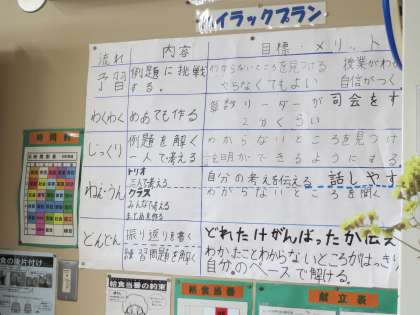 ハイラックプラン
流れ 内容 目標・メリット
予習 例題に挑戦する。 わからないところを見つける 授業がわ
やらなくてもよい 自信がつく
わくわく めあても作る 算数リーダーが司会をす
2分くらい
じっくり 例題を解く 一人で考える わからないところを見つけ
説明ができるようにする
トリオ 三人で考える 自分の考えを伝える 話しやす
クラス みんなで考える わからないところを聞く
まとめを作る
どんどん 振り返りを書く どれだけがんばったか伝え
練習問題を解く わかったことわからないところがはっきり
自分のペースで解ける。
時間割
食の後片付け
給食当番の約束
給食当番
献立表